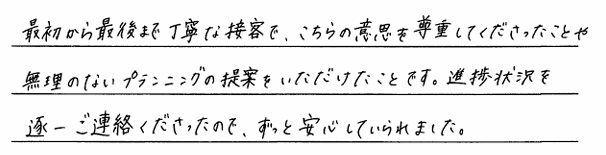 最初から最後まで丁寧な接客で、こちらの意思を尊重してくださったことや
無理のないプランニングの提案をいただけたことです。進捗状況を
逐一ご連絡くださったので、ずっと安心していられました。